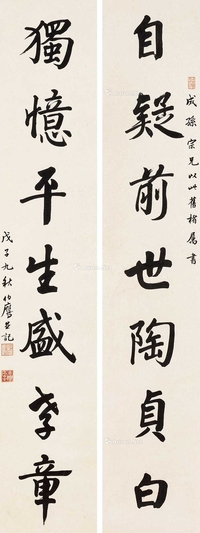 成孫宗兄以此舊楮屬書
自疑前世陶貞白
獨憶平生盛孝章
戊子九秋伯鷹并記